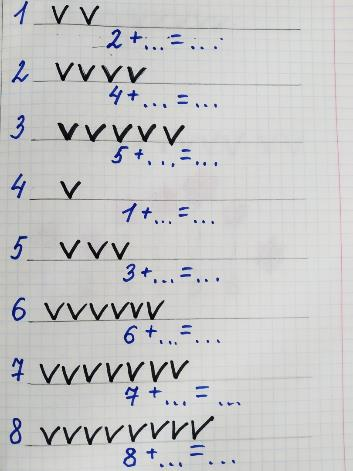 1 V V
2 + ... = ...
2 V V V V
4 + ... = ...
3 V V V V V
5 + ... = ...
4 V
1 + ... = ...
5 V V V
3 + ... = ...
6 V V V V V V
6 + ... = ...
7 V V V V V V V
7 + ... = ...
8 V V V V V V V V
8 + ... = ...